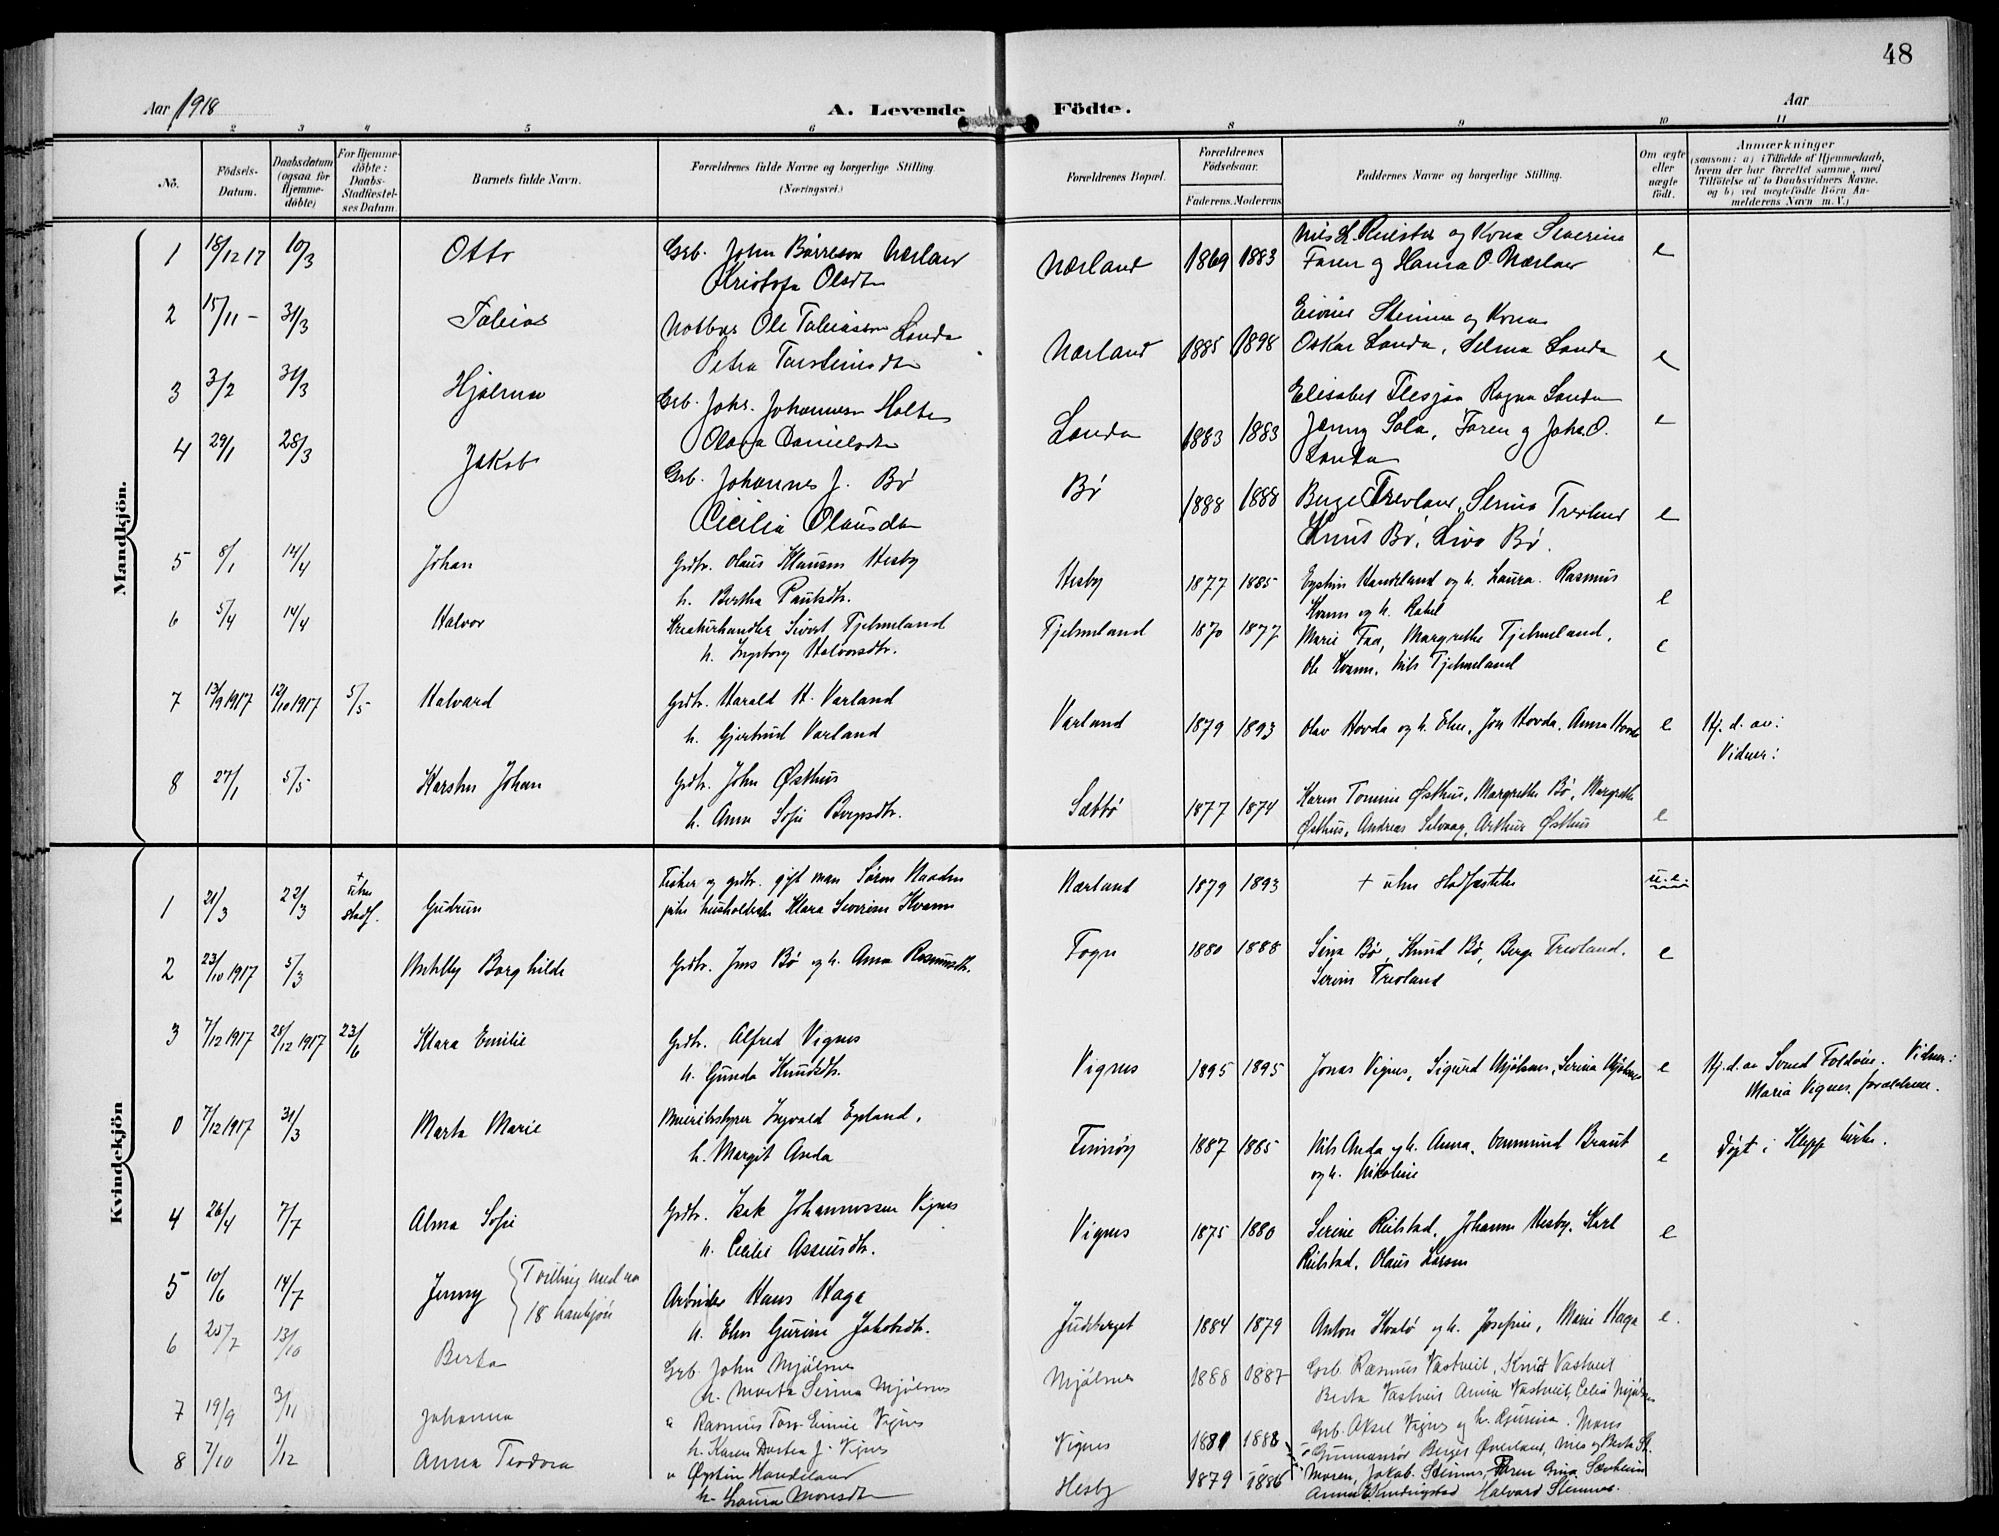 48
Aar 1918
A. Levende Födte.
Aar
1 2 3 4 5 6 8 9 10 11
No.
Födsels-Datum.
Daabsdatum (ogsaa for Hjemme-döbte)
For Hjemme-döbte: Daabs-Stadfæstel-ses Datum.
Barnets fulde Navn.
Forældrenes fulde Navne og borgerlige Stilling. (Næringsvei.)
Forældrenes Bopæl.
Forældrenes Födselsaar.
Faderens. Moderens.
Faddernes Navne og borgerlige Stilling.
Om ægte eller uægte födt.
Anmærkninger
(saasom: a) i Tilfælde af Hjemmedaab, hvem der har forrettet samme, med Tilföielse af to Daabsvidners Navne. og b) ved uægtefödte Börn An-melderens Navn m. V.)
Mandkjön.
1 18/12 17 10/3 Otto Grb. John Børreson Nærland
Kristofa Olsdtr Nærland 1869 1883 Faren og Hanna O. Nærland e
2 15/11 - 31/3 Tobias Ole Tobiassen Landa
Petra Torsteinsdtr Nærland 1885 1898 Oskar Landa, Selma Landa e
3 3/2 31/3 Hjalmar Grb. Johs. Johannesen Holte
Olava Danielsdtr Landa 1883 1883 Elisabet Flesjaa Ragna Landa
Jenny Sola, Faren og Johs. O. Landa e
4 29/1 28/3 Jakob Grb. Johannes J. Bø
Cicilia Olausdtr Bø 1888 1888 Berge Trevland, Serina Trevland
Knut Bø, Liva Bø. e
5 8/1 14/4 Johan Grdbr. Olaus Klausen Hesby
h. Bertha Paulsdtr. Hesby 1877 1885 Eystein Handeland og h. Laura. Rasmus
Kvam og h. Rakel e
6 5/4 14/4 Halvor Kreaturhandler Sivert Tjelmeland
h. Ingeborg Halvorsdtr. Tjelmeland 1870 1877 Marie Faa, Margrethe Tjelmeland,
Ole Kvam, Nils Tjelmeland e
7 13/9 1917 12/10 1917 5/5 Halvard Grdbr. Harald H. Varland
h. Gjertrud Varland Varland 1879 1893 Olav Hovda og h. Elen, Jon Hovda, Anna Hovda e Hj. d. av:
Vidner:
8 27/1 5/5 Karsten Johan Grdbr. John Østhus
h. Anna Sofie Bergesdtr. Sæbbø 1877 1874 Karen Tomine Østhus, Margrethe Bø, Margrethe
Østhus, Andreas Selvaag, Arthur Østhus e
Kvindekjön
1 21/3 22/3 + uten stadf. Gudrun Fisker og grdbr. gift man Søren Naaden
pike husholderske Klara Severine Kvame Nærland 1879 1893 + uten Stadfæstelse u.e.
2 23/10 1917 5/3 Borghilde Grdbr. Jens Bø og h. Anna Rasmusdtr. Fogn 1880 1888 Sina Bø, Knud Bø, Berge Trevland,
Serine Trevland e
3 7/12 1917 28/12 1917 23/6 Klara Emilie Grdbr. Alfred Vignes
h. Gunda Knudsdtr. Vignes 1895 1895 Jonas Vignes, Sigurd Mjølsnes, Serina Mjølsnes e Hj. d. av Svend Foldøen. Vidner:
Maria Vignes, forældrene.
0 7/12 1917 31/3 Marta Marie Meieribestyrer Ingvald Egeland,
h. Margit Anda Finnøy 1887 1885 Nils Anda og h. Anna, Ommund Braut
og h. Nikoline e Døpt i Klepp kirke.
4 26/4 7/7 Alma Sofie Grdbr. Isak Johannessen Vignes
h. Cecilie Assersdtr. Vignes 1875 1880 Serine Reilstad, Johanne Hesby, Karl
Reilstad, Olaus Larsen e
5 10/6 14/7 Jenny Tvilling med no 18 hankjøn Arbeider Hans Haga
h. Elen Gurine Jakobsdtr. Judeberget 1884 1879 Anton Kvalø og h. Josefine, Marie Haga e.
6 25/7 13/10 Berta Grb. John Mjølsnes
h. Marta Serina Mjølsnes Mjølsnes 1888 1887 Grb. Rasmus Vastveit, Knut Vastveit
Berta Vastveit Anna Vastveit, Celia Mjølsnes
7 19/9 3/11 Johanna " Rasmus Tore Vignes
h. Karen Dortea J. Vignes Vignes 1881 1888 Grb. Aksel Vignes og h. Gurina. Mons
Gunnarsrø Berge Øverland, Nils og Berta
8 7/10 1/12 Anna Teodora " Øystein Handeland
h. Laura Monsdtr Hesby 1879 1886 Moren, Jakob Steinnes, Faren Gina Sævheim
Anna E. Kindingstad Halvard Steinnes.